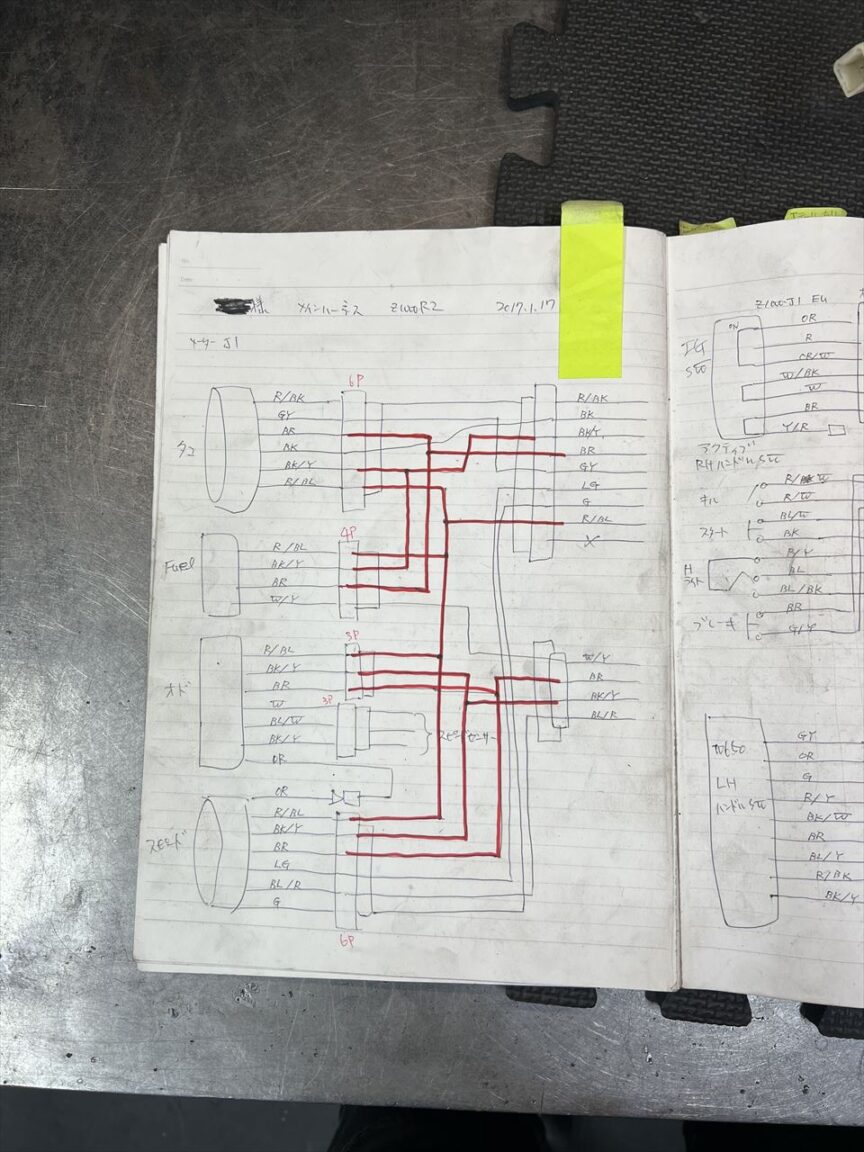 様 メインハーネス Z1000R2 2017.1.17
メーター J1
6P
タコ
R/BK
GY
BR
BK
BK/Y
R/BL
R/BK
BK
BK/Y
BR
GY
LG
G
R/BL
X
4P
Fuel
R/BL
BK/Y
BR
W/Y
3P
オド
R/BL
BK/Y
BR
W
BL/W
BK/Y
OR
3P
スピードセンサー
W/Y
BR
BK/Y
BL/R
スピード
OR
R/BL
BK/Y
BR
LG
BL/R
G
6P
Z1000J1 E4
IG
SW
ON
OR
R
OR/W
W/BK
W
BR
Y/R
アクティブ
RHハンドルSW
キル
スタート
H
ライト
ブレーキ
R/W
BL/W
BK
R/Y
BL
BL/BK
BR
G/Y
LH
ハンドルSW
GY
OR
G
R/Y
BK/W
BR
BL/Y
R/BK
BK/Y